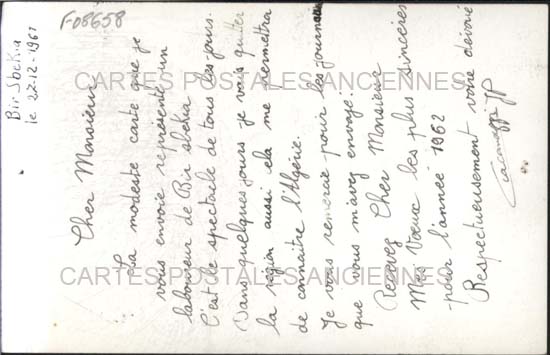 F08658
Bir Sbekia
le 22-12-1961
Cher Monsieur
La modeste carte que je
vous envoie représente un
laboureur de Bir sbekia
C'est le spectacle de tous les jours.
Dans quelques jours je vais quitter
la région aussi cela me permettra
de connaitre l'Algérie.
Je vous remercie pour les journaux
que vous m'avez envoyé.
Recevez Cher Monsieur
Mes Voeux les plus sincères
pour l'année 1962
Respectueusement votre dévoué
CARTES POSTALES ANCIENNES
CARTES POSTALES ANCIENNES